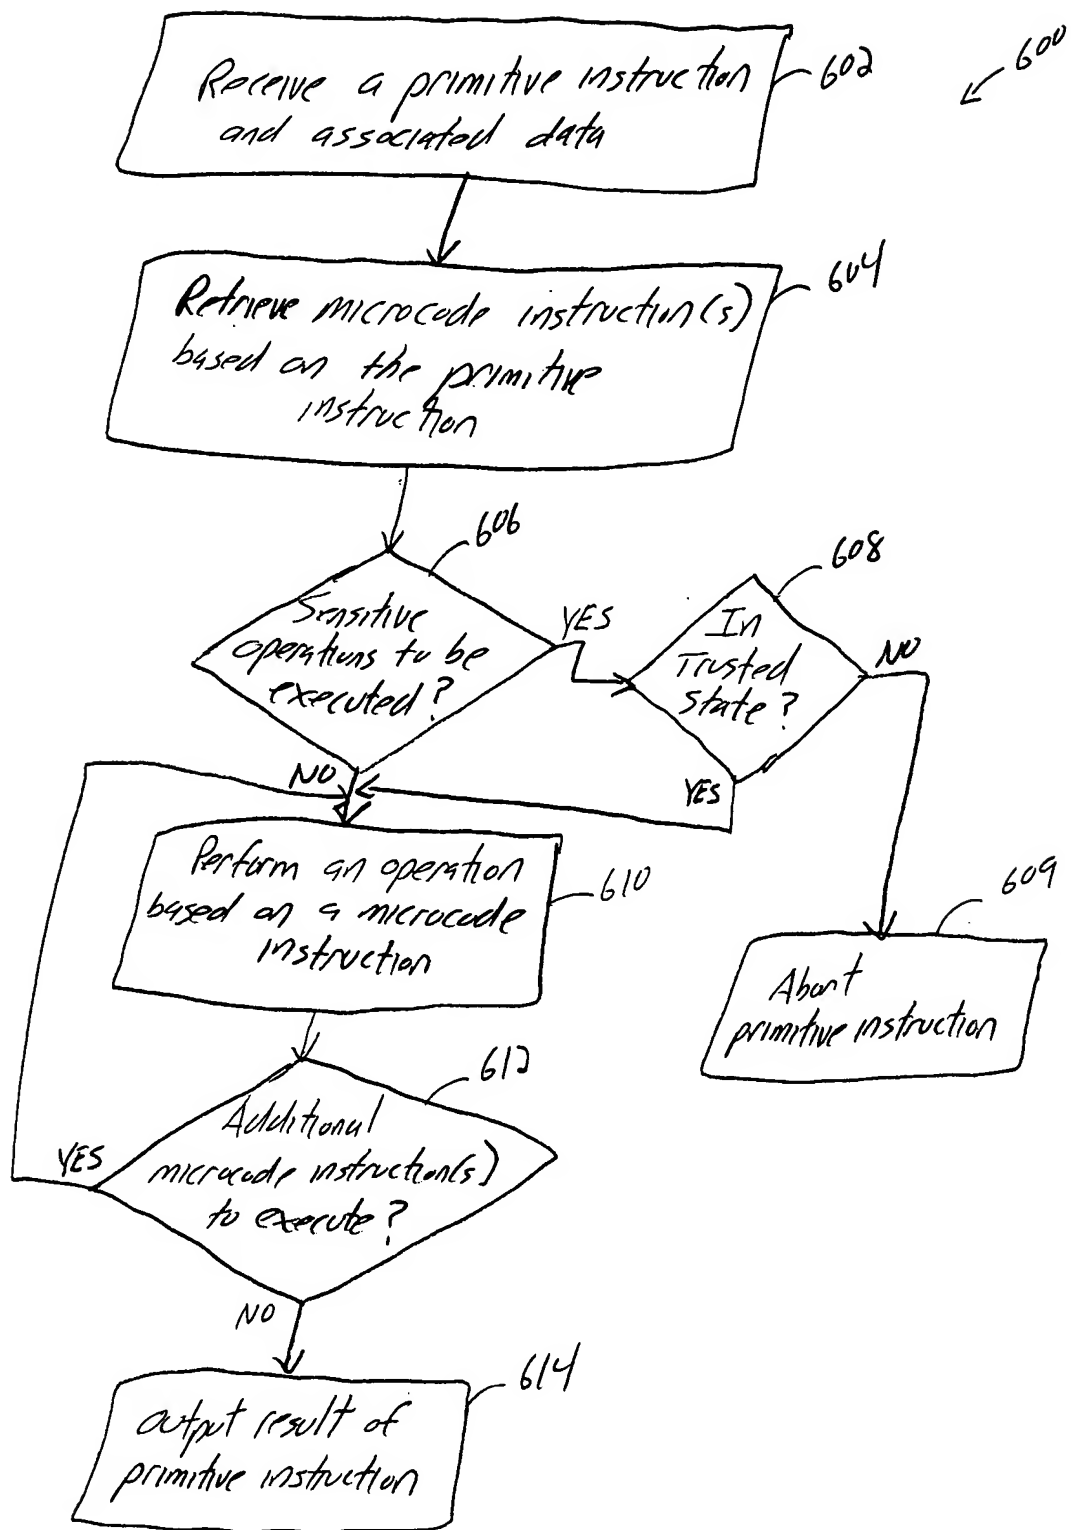 600
Receive a primitive instruction
and associated data
602
Retrieve microcode instruction(s)
based on the primitive
instruction
604
606
Sensitive
operations to be
executed?
YES
NO
608
In
Trusted
state?
NO
YES
Perform an operation
based on a microcode
instruction
610
609
Abort
primitive instruction
612
Additional
microcode instruction(s)
to execute?
YES
NO
614
output result of
primitive instruction